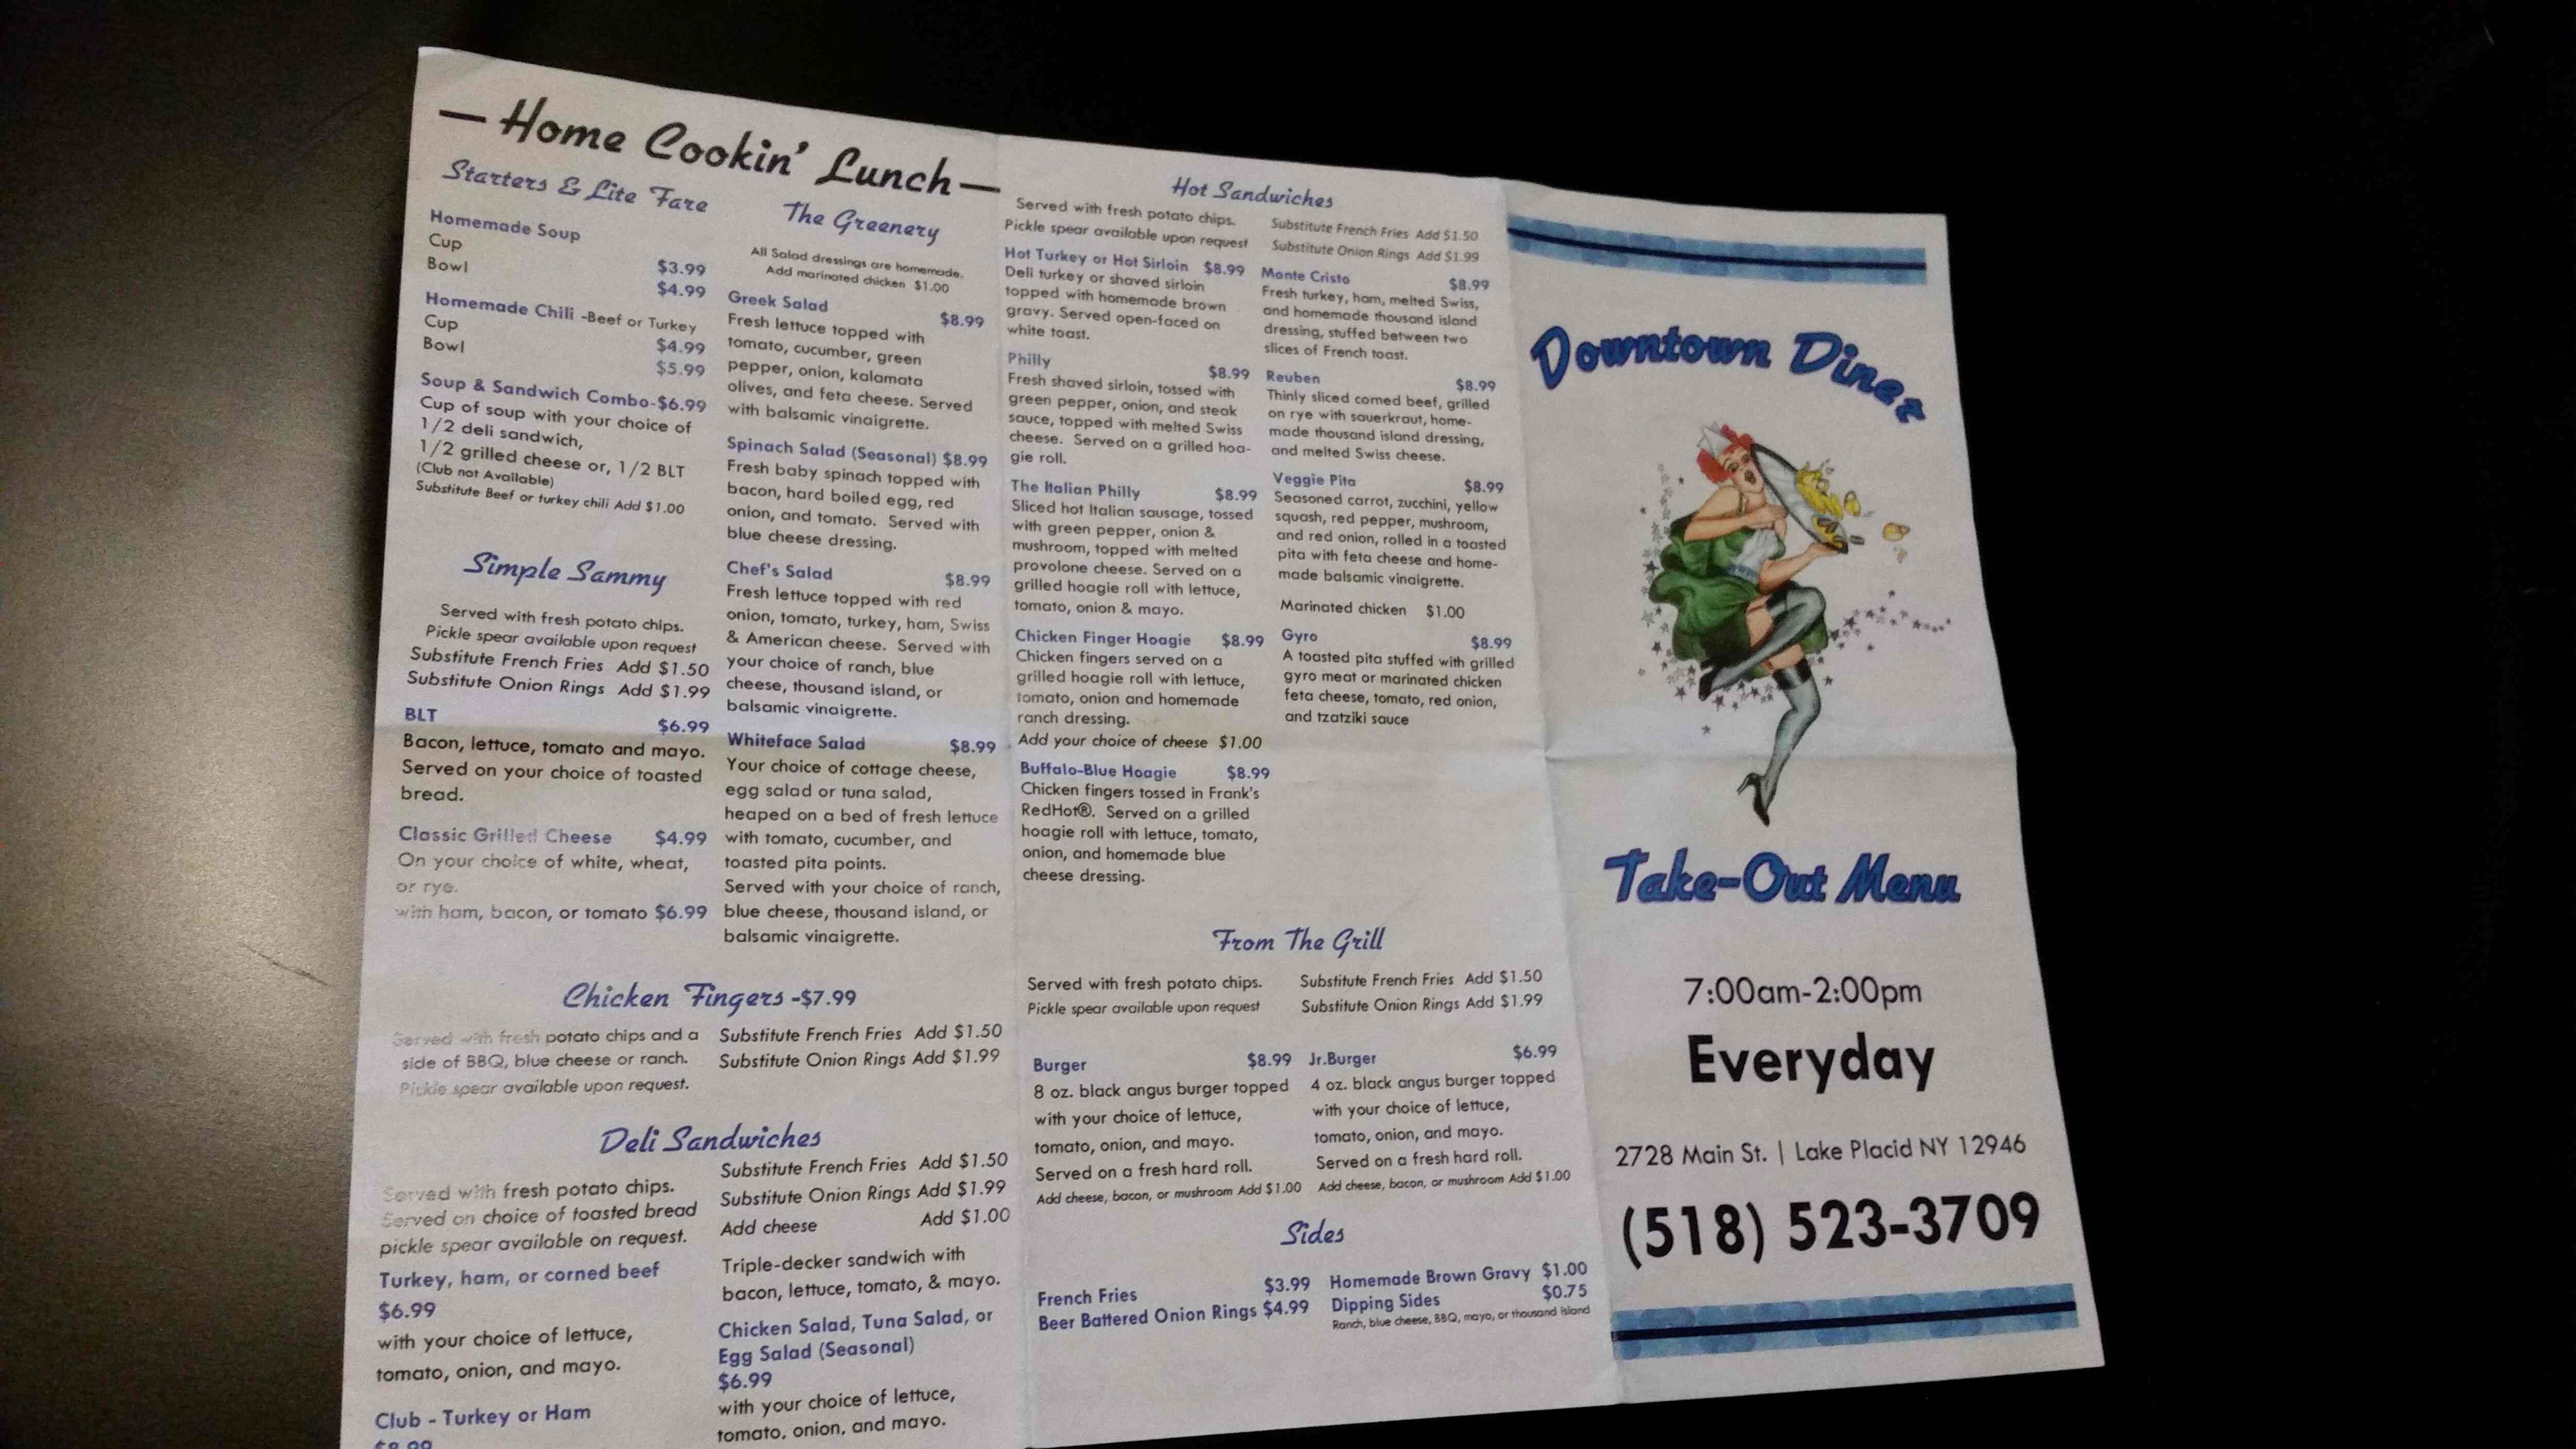 Home Cookin' Lunch
Starters & Lite Fare
Homemade Soup
Cup $3.99
Bowl $4.99
Homemade Chili -Beef or Turkey
Cup $4.99
Bowl $5.99
Soup & Sandwich Combo-$6.99
Cup of soup with your choice of
1/2 deli sandwich,
1/2 grilled cheese or, 1/2 BLT
(Club not Available)
Substitute Beef or turkey chili Add $1.00
Simple Sammy
Served with fresh potato chips.
Pickle spear available upon request
Substitute French Fries Add $1.50
Substitute Onion Rings Add $1.99
BLT $6.99
Bacon, lettuce, tomato and mayo.
Served on your choice of toasted
bread.
Classic Grilled Cheese $4.99
On your choice of white, wheat,
or rye.
with ham, bacon, or tomato $6.99
The Greenery
All Salad dressings are homemade.
Add marinated chicken $1.00
Greek Salad $8.99
Fresh lettuce topped with
tomato, cucumber, green
pepper, onion, kalamata
olives, and feta cheese. Served
with balsamic vinaigrette.
Spinach Salad (Seasonal) $8.99
Fresh baby spinach topped with
bacon, hard boiled egg, red
onion, and tomato. Served with
blue cheese dressing.
Chef's Salad $8.99
Fresh lettuce topped with red
onion, tomato, turkey, ham, Swiss
& American cheese. Served with
your choice of ranch, blue
cheese, thousand island, or
balsamic vinaigrette.
Whiteface Salad $8.99
Your choice of cottage cheese,
egg salad or tuna salad,
heaped on a bed of fresh lettuce
with tomato, cucumber, and
toasted pita points.
Served with your choice of ranch,
blue cheese, thousand island, or
balsamic vinaigrette.
Chicken Fingers -$7.99
Served with fresh potato chips and a
side of BBQ, blue cheese or ranch.
Pickle spear available upon request.
Substitute French Fries Add $1.50
Substitute Onion Rings Add $1.99
Deli Sandwiches
Served with fresh potato chips.
Served on choice of toasted bread
pickle spear available on request.
Turkey, ham, or corned beef
$6.99
with your choice of lettuce,
tomato, onion, and mayo.
Club - Turkey or Ham
$8.99
Substitute French Fries Add $1.50
Substitute Onion Rings Add $1.99
Add cheese Add $1.00
Triple-decker sandwich with
bacon, lettuce, tomato, & mayo.
Chicken Salad, Tuna Salad, or
Egg Salad (Seasonal)
$6.99
with your choice of lettuce,
tomato, onion, and mayo.
Hot Sandwiches
Served with fresh potato chips.
Pickle spear available upon request
Substitute French Fries Add $1.50
Substitute Onion Rings Add $1.99
Hot Turkey or Hot Sirloin $8.99
Deli turkey or shaved sirloin
topped with homemade brown
gravy. Served open-faced on
white toast.
Philly $8.99
Fresh shaved sirloin, tossed with
green pepper, onion, and steak
sauce, topped with melted Swiss
cheese. Served on a grilled hoa-
gie roll.
The Italian Philly $8.99
Sliced hot Italian sausage, tossed
with green pepper, onion &
mushroom, topped with melted
provolone cheese. Served on a
grilled hoagie roll with lettuce,
tomato, onion & mayo.
Chicken Finger Hoagie $8.99
Chicken fingers served on a
grilled hoagie roll with lettuce,
tomato, onion and homemade
ranch dressing.
Add your choice of cheese $1.00
Buffalo-Blue Hoagie $8.99
Chicken fingers tossed in Frank's
RedHot®. Served on a grilled
hoagie roll with lettuce, tomato,
onion, and homemade blue
cheese dressing.
Monte Cristo $8.99
Fresh turkey, ham, melted Swiss,
and homemade thousand island
dressing, stuffed between two
slices of French toast.
Reuben $8.99
Thinly sliced corned beef, grilled
on rye with sauerkraut, home-
made thousand island dressing,
and melted Swiss cheese.
Veggie Pita $8.99
Seasoned carrot, zucchini, yellow
squash, red pepper, mushroom,
and red onion, rolled in a toasted
pita with feta cheese and home-
made balsamic vinaigrette.
Marinated chicken $1.00
Gyro $8.99
A toasted pita stuffed with grilled
gyro meat or marinated chicken
feta cheese, tomato, red onion,
and tzatziki sauce
From The Grill
Served with fresh potato chips.
Pickle spear available upon request
Substitute French Fries Add $1.50
Substitute Onion Rings Add $1.99
Burger $8.99
8 oz. black angus burger topped
with your choice of lettuce,
tomato, onion, and mayo.
Served on a fresh hard roll.
Add cheese, bacon, or mushroom Add $1.00
Jr.Burger $6.99
4 oz. black angus burger topped
with your choice of lettuce,
tomato, onion, and mayo.
Served on a fresh hard roll.
Add cheese, bacon, or mushroom Add $1.00
Sides
French Fries $3.99
Beer Battered Onion Rings $4.99
Homemade Brown Gravy $1.00
Dipping Sides $0.75
Ranch, blue cheese, BBQ, mayo, or thousand island
Downtown Diner
Take-Out Menu
7:00am-2:00pm
Everyday
2728 Main St. | Lake Placid NY 12946
(518) 523-3709